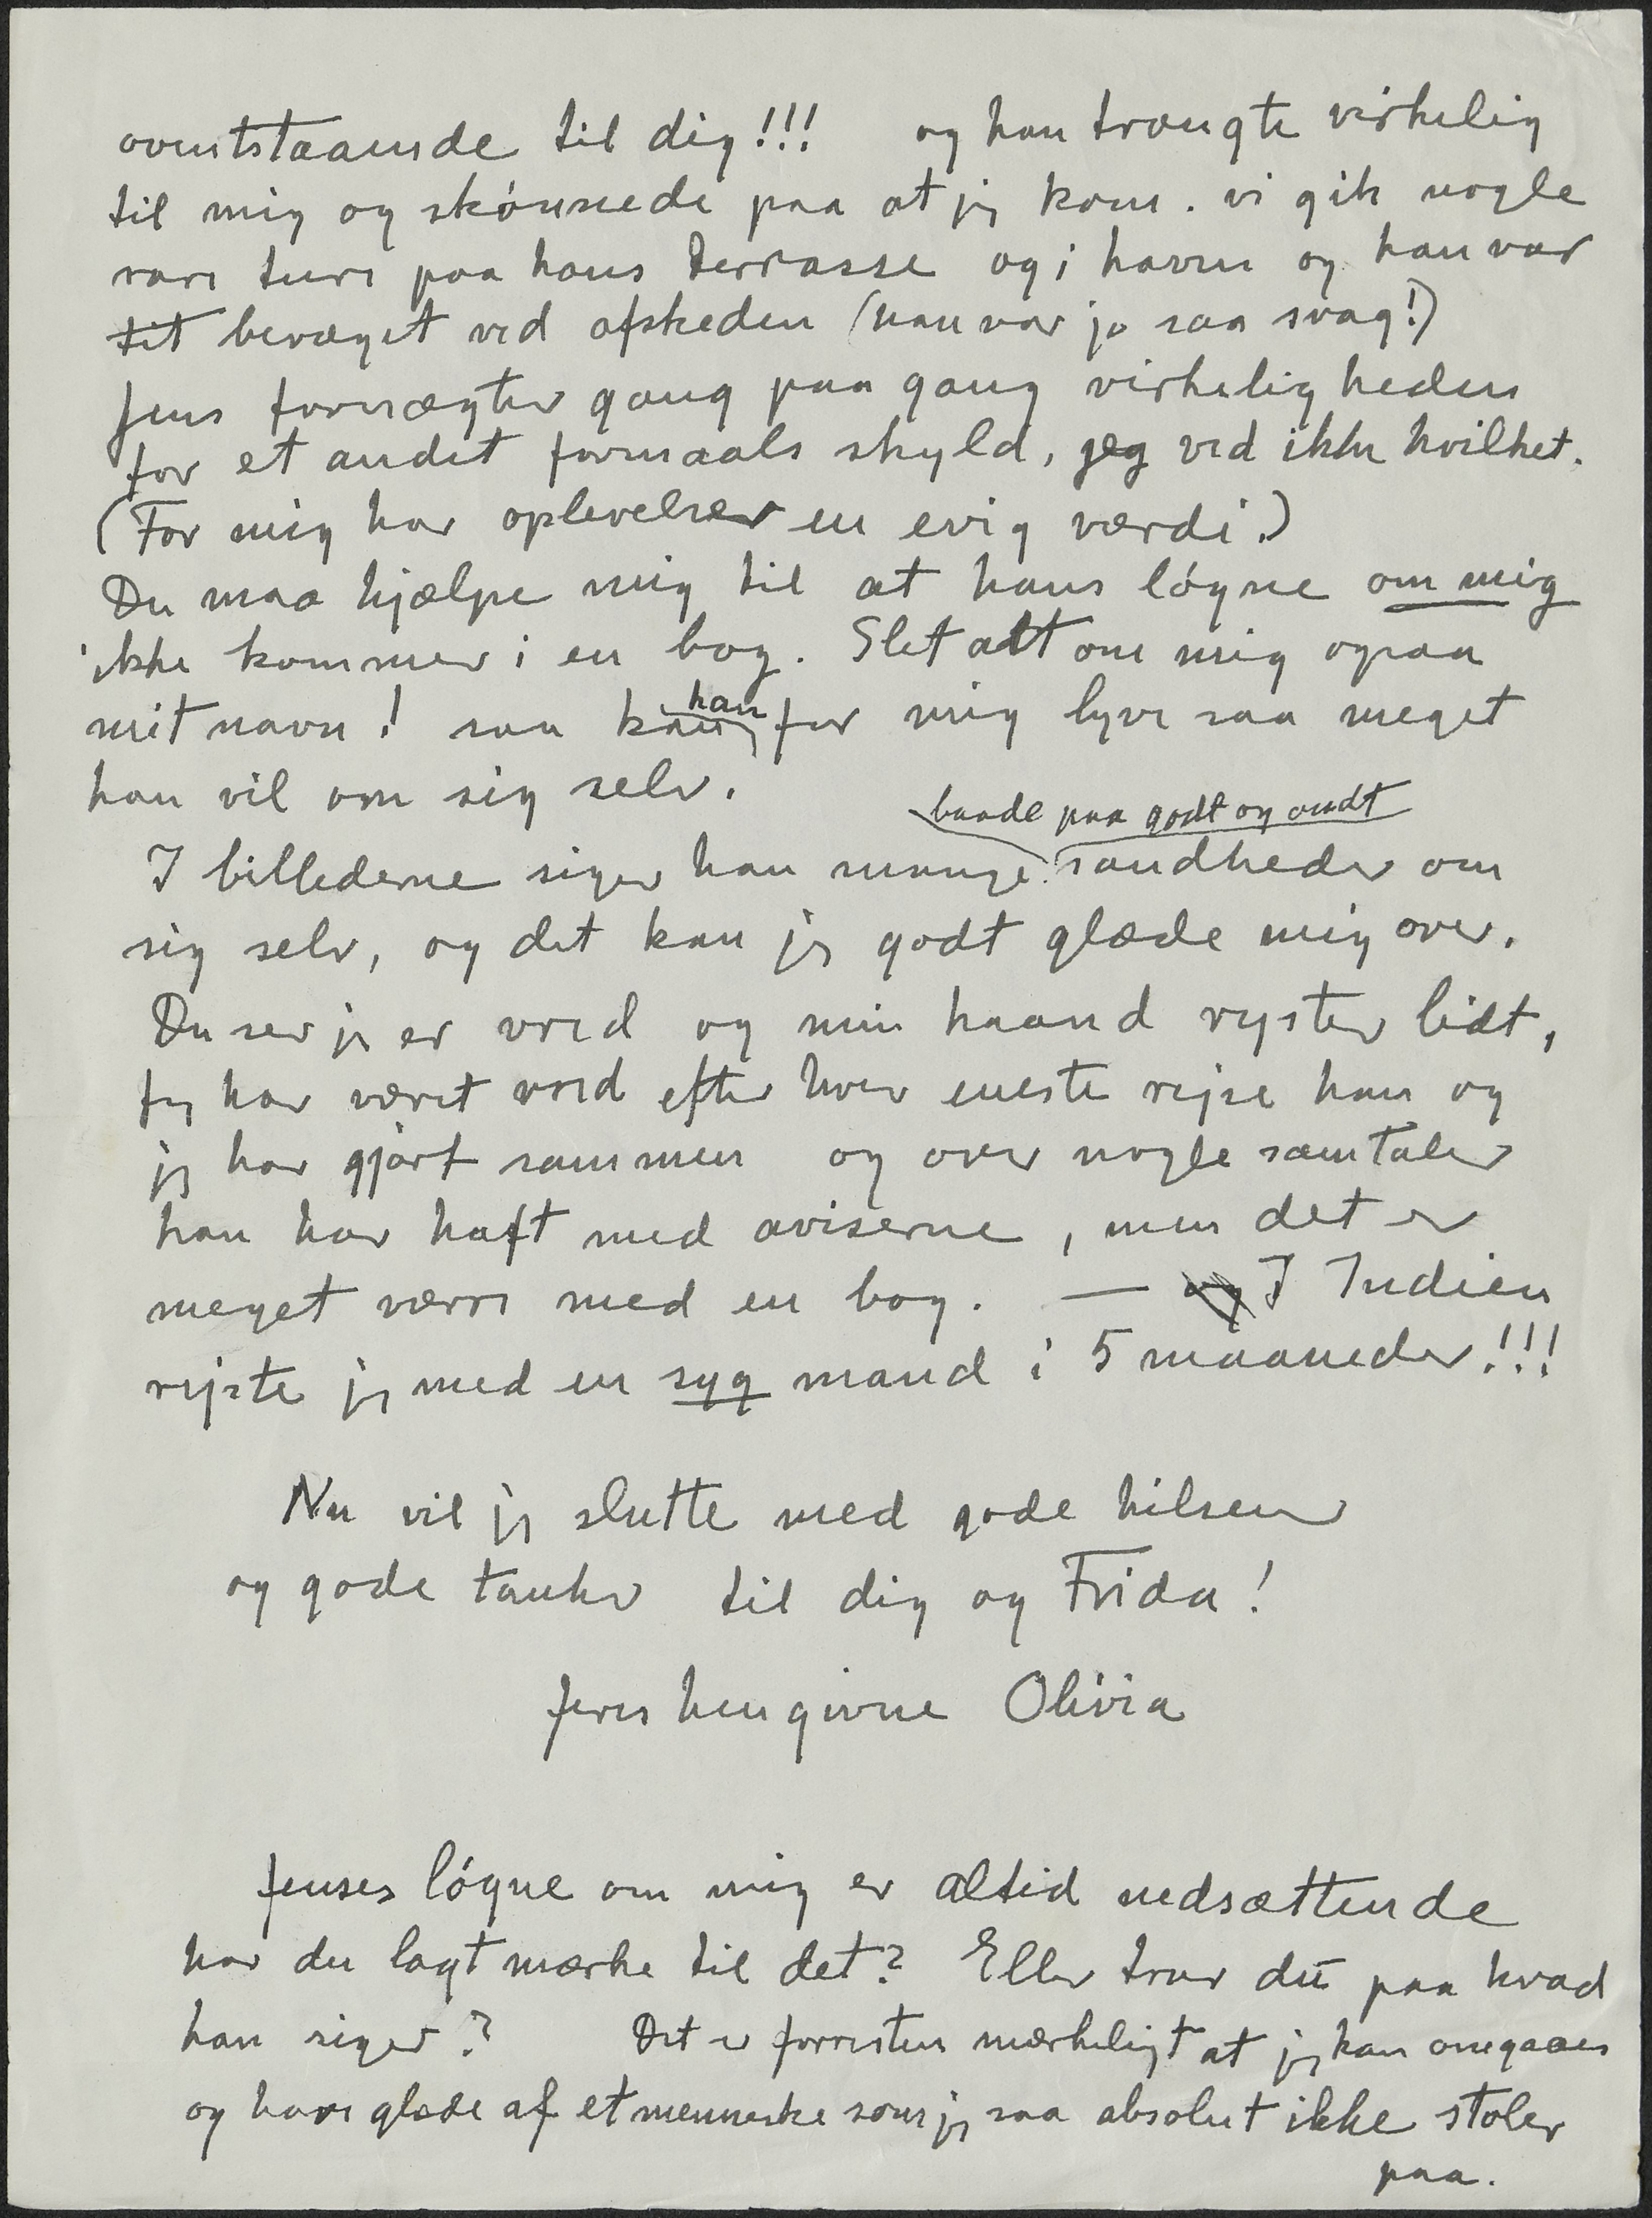 ovenstaaende til dig!!! og han trængte virkelig
til mig og skónnede paa at jeg kom. vi gik nogle
rare ture paa hans terrasse og i haven og han var
tit bevæget ved afskeden (han var jo saa svag!)
Jens fornægter gang paa gang virkeligheden
for et andet formaals skyld, jeg ved ikke hvilket.
(For mig har oplevelser en evig værdi.)
Du maa hjælpe mig til at hans lógne om mig
ikke kommer i en bog. Slet alt om mig ogsaa
mit navn! saa kan han for mig lyve saa meget
han vil om sig selv.
baade paa godt og ondt
I billederne siger han mange sandheder om
sig selv, og det kan jeg godt glæde mig over.
Du ser jeg er vred og min haand ryster lidt,
jeg har været vred efter hver eneste rejse han og
jeg har gjort sammen og over nogle samtaler
han har haft med aviserne, men det er
meget værre med en bog. — og I Indien
rejste jeg med en syg mand i 5 maaneder!!!
Nu vil jeg slutte med gode hilsener
og gode tanker til dig og Frida!
Jeres hengivne Olivia
Jenses lógne om mig er altid nedsættende
har du lagt mærke til det? Eller tror du paa hvad
han siger? Det er forresten mærkeligt at jeg kan omgaaes
og have glæde af et menneske som jeg saa absolut ikke stoler
paa.